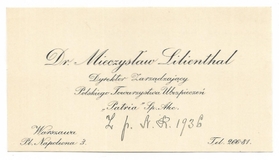 Dr. Mieczysław Lilienthal
Dyrektor Zarządzający
Polskiego Towarzystwa Ubezpieczeń
„Patria” Sp. Akc.
Z p. N. R. 1936
Warszawa
Pl. Napoleona 3.
Tel. 266-81.